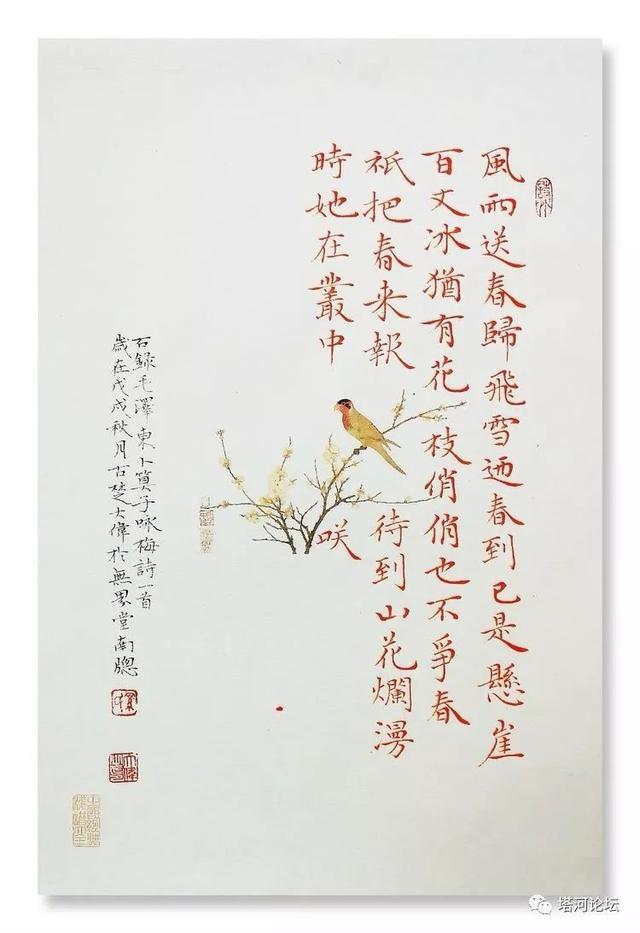 風雨送春歸飛雪迎春到已是懸崖
百丈冰猶有花枝俏俏也不爭春
祇把春来報待到山花爛漫
時她在叢中咲
右録毛澤東卜筭子咏梅詩一首
歲在戊戌秋月古楚大偉於無界堂南牕
塔河论坛